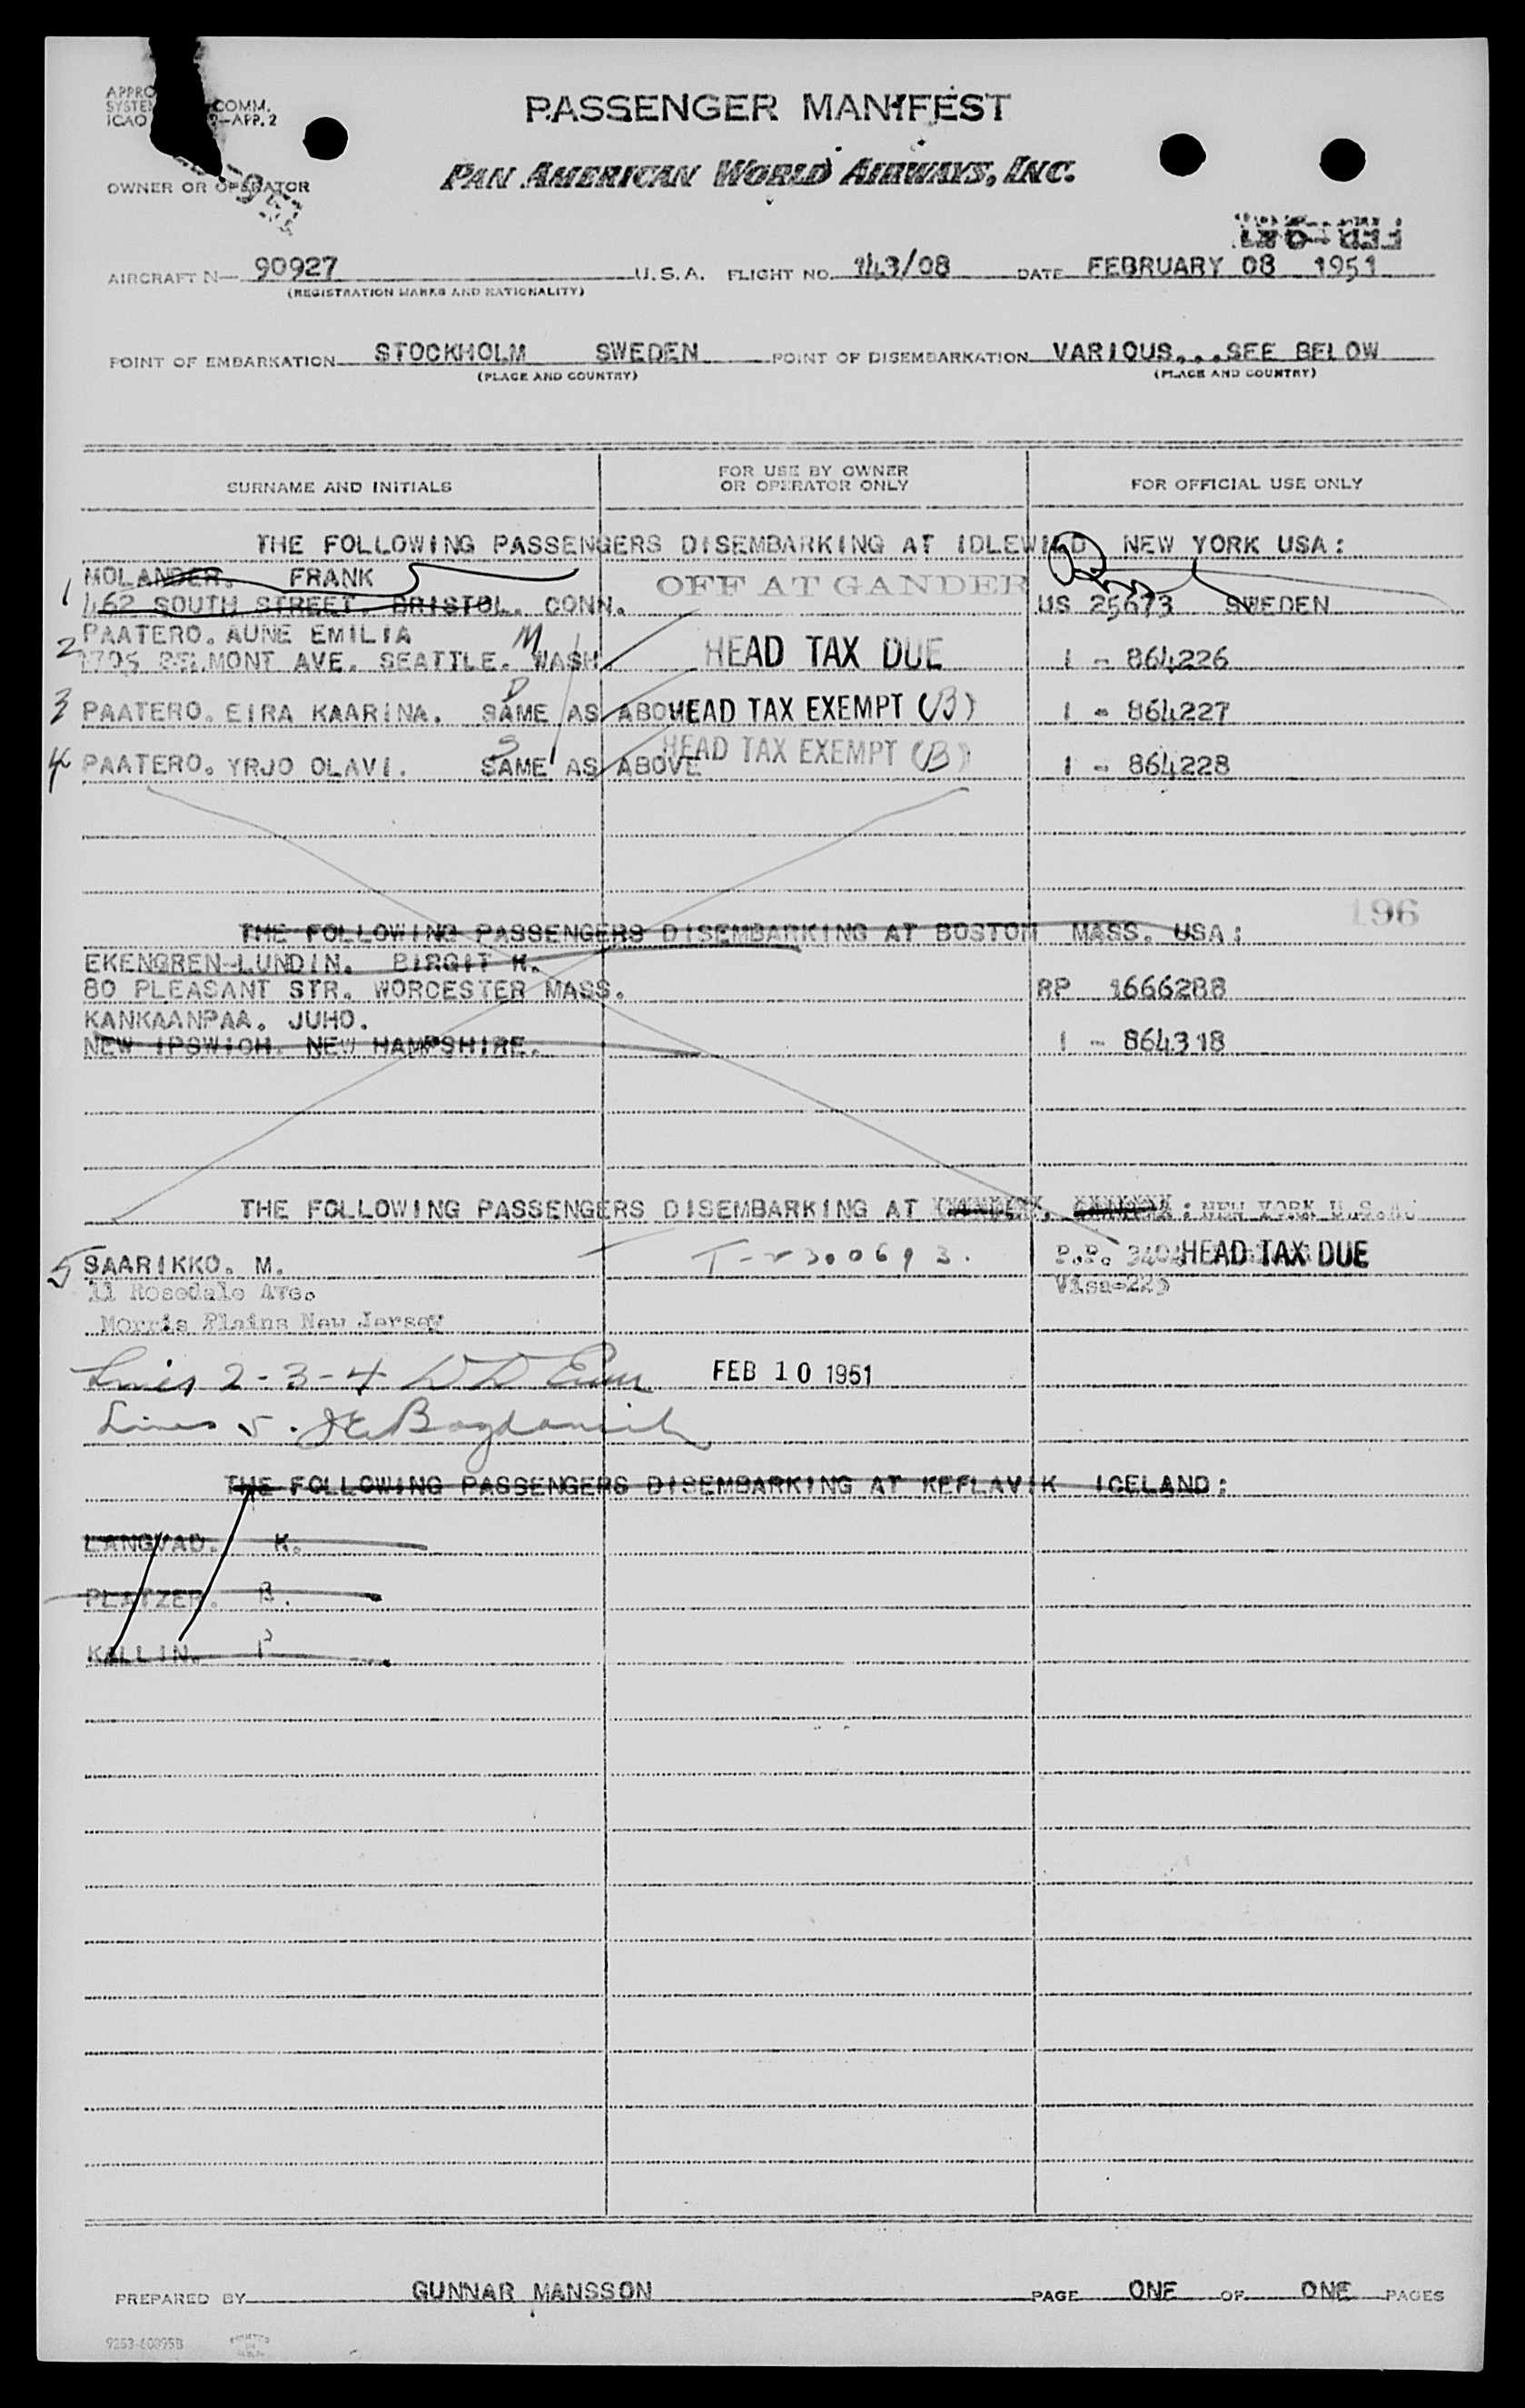 PASSENGER MANIFEST
COMM.
ICAO -APP. 2
PAN AMERICAN WORLD AIRWAYS, INC.
OWNER OR OPERATOR
AIRCRAFT N— 90927 U.S.A. FLIGHT NO. 143/08 DATE FEBRUARY 08 1951
(REGISTRATION MARKS AND NATIONALITY)
POINT OF EMBARKATION STOCKHOLM SWEDEN POINT OF DISEMBARKATION VARIOUS...SEE BELOW
(PLACE AND COUNTRY) (PLACE AND COUNTRY)
SURNAME AND INITIALS FOR USE BY OWNER OR OPERATOR ONLY FOR OFFICIAL USE ONLY
THE FOLLOWING PASSENGERS DISEMBARKING AT IDLEWILD NEW YORK USA:
1 MOLANDER. FRANK OFF AT GANDER
462 SOUTH STREET. BRISTOL. CONN. US 25673 SWEDEN
2 PAATERO. AUNE EMILIA M
BELMONT AVE. SEATTLE. WASH HEAD TAX DUE I - 864226
3 PAATERO. EIRA KAARINA. D SAME AS ABOVE HEAD TAX EXEMPT (B) I - 864227
4 PAATERO. YRJO OLAVI. S SAME AS ABOVE HEAD TAX EXEMPT (B) I - 864228
196
THE FOLLOWING PASSENGERS DISEMBARKING AT BOSTON MASS. USA:
EKENGREN-LUNDIN. BIRGIT H.
80 PLEASANT STR. WORCESTER MASS. RP 1666288
KANKAANPAA. JUHO.
NEW IPSWICH. NEW HAMPSHIRE. I - 864318
THE FOLLOWING PASSENGERS DISEMBARKING AT : NEW YORK U.S.A.
5 SAARIKKO. M. T-2300693. P.P. HEAD TAX DUE
11 Rosedale Ave. Visa-223
Morris Plains New Jersey
Lines 2-3-4 FEB 10 1951
Lines 5.
THE FOLLOWING PASSENGERS DISEMBARKING AT KEFLAVIK ICELAND:
LANGVAD. K.
PLATZER. B.
KALLIN. P
PREPARED BY GUNNAR MANSSON PAGE ONE OF ONE PAGES